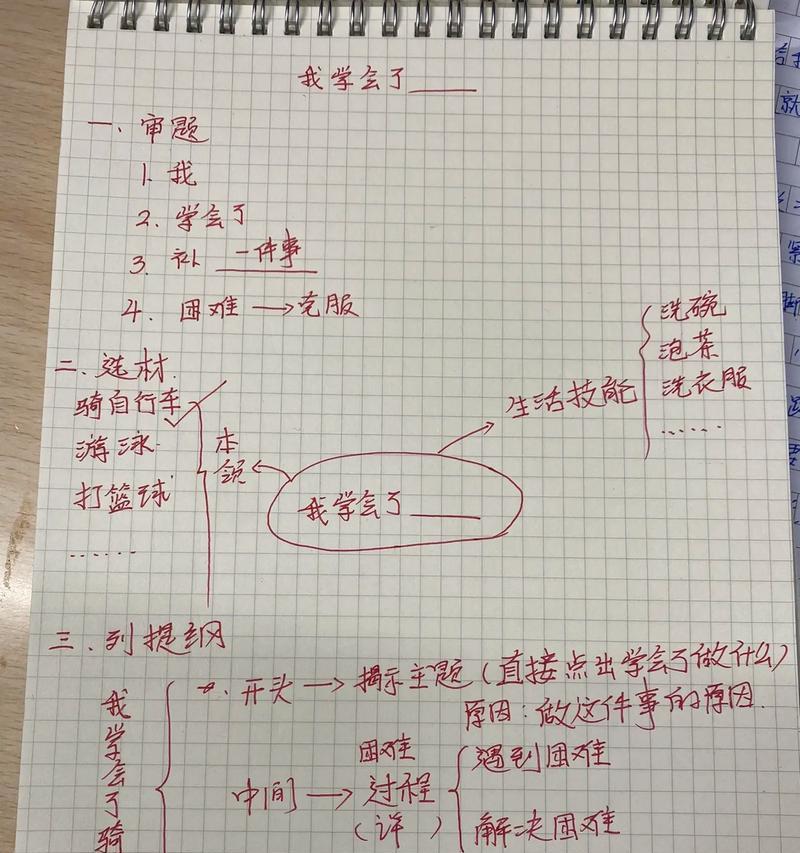 我学会了____
一、审题
1. 我
2. 学会了
3. 补 一件事
4. 困难→克服
二、选材
骑自行车
游泳
打篮球
……
本领
我学会了____
生活技能
洗碗
泡茶
洗衣服
……
三、列提纲
我学会了骑
开头→揭示主题(直接点出学会了做什么)
原因:做这件事的原因.
中间→困难过程(详)
遇到困难
解决困难